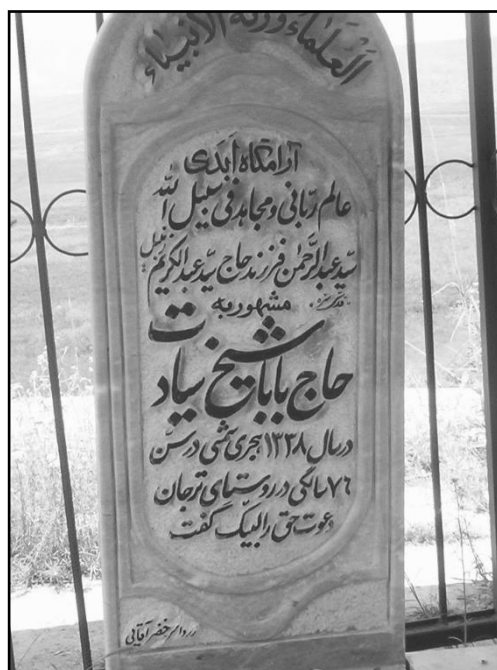 العلماء ورثة الأنبياء
آرامگاه ابدی
عالم ربّانی و مجاهد فی سبیل الله
سیّد عبدالرّحمٰن فرزند حاج سیّد عبدالکریم
مشهور به
حاج باباشیخ سیادت
در سال ۱۳۳۸ هجری شمسی در سنّ
۷٦ سالگی در روستای ترجان
دعوت حق را لبیّک گفت
خضر آقایی